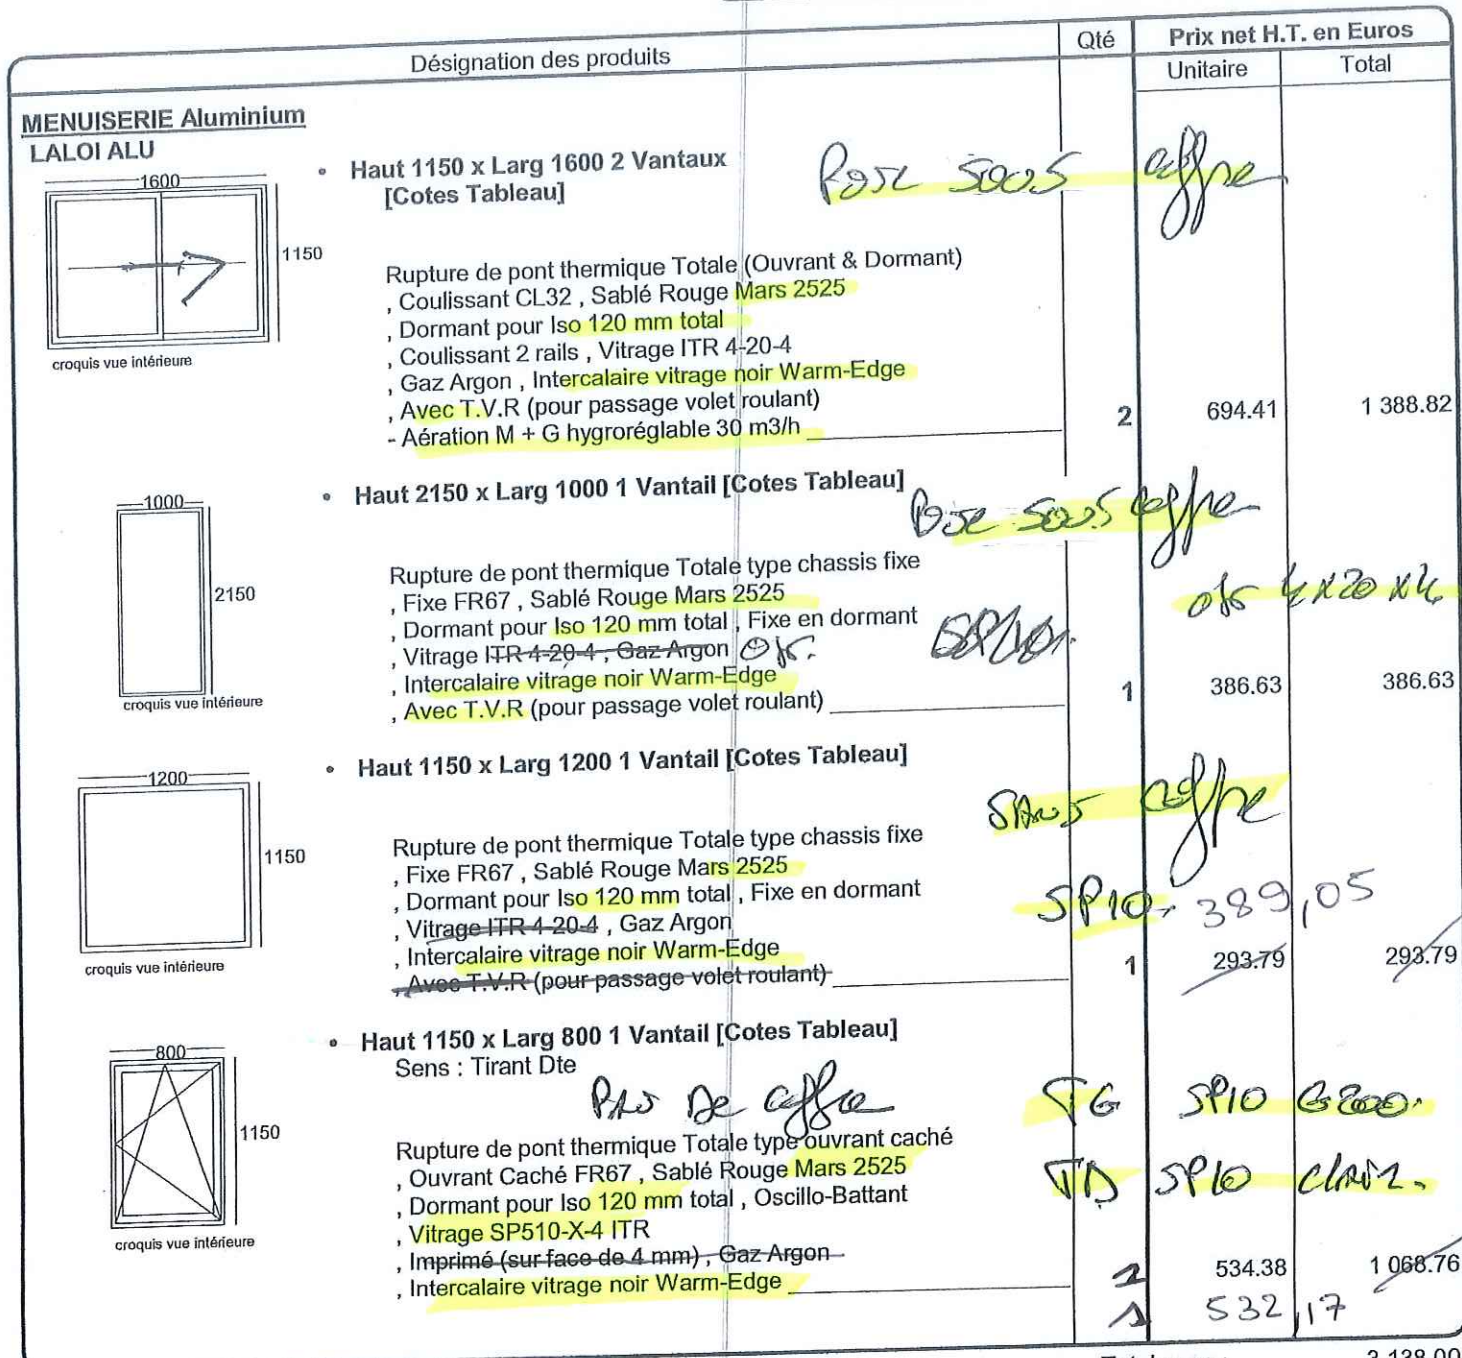 Désignation des produits
Qté
Prix net H.T. en Euros
Unitaire
Total
MENUISERIE Aluminium
LALOI ALU
1600
1150
croquis vue intérieure
• Haut 1150 x Larg 1600 2 Vantaux
[Cotes Tableau]
Pose sous coffre
Rupture de pont thermique Totale (Ouvrant & Dormant)
, Coulissant CL32 , Sablé Rouge Mars 2525
, Dormant pour Iso 120 mm total
, Coulissant 2 rails , Vitrage ITR 4-20-4
, Gaz Argon , Intercalaire vitrage noir Warm-Edge
, Avec T.V.R (pour passage volet roulant)
- Aération M + G hygroréglable 30 m3/h
2 694.41 1 388.82
1000
2150
croquis vue intérieure
• Haut 2150 x Larg 1000 1 Vantail [Cotes Tableau]
Pose sous coffre
Rupture de pont thermique Totale type chassis fixe
, Fixe FR67 , Sablé Rouge Mars 2525
, Dormant pour Iso 120 mm total , Fixe en dormant
, Vitrage ITR 4-20-4 , Gaz Argon
4x20x4
, Intercalaire vitrage noir Warm-Edge
, Avec T.V.R (pour passage volet roulant)
1 386.63 386.63
1200
1150
croquis vue intérieure
• Haut 1150 x Larg 1200 1 Vantail [Cotes Tableau]
SANS coffre
Rupture de pont thermique Totale type chassis fixe
, Fixe FR67 , Sablé Rouge Mars 2525
, Dormant pour Iso 120 mm total , Fixe en dormant
SP10. 389,05
, Vitrage ITR 4-20-4 , Gaz Argon
, Intercalaire vitrage noir Warm-Edge
, Avec T.V.R (pour passage volet roulant)
1 293.79 293.79
800
1150
croquis vue intérieure
• Haut 1150 x Larg 800 1 Vantail [Cotes Tableau]
Sens : Tirant Dte
PAS De coffre
TG SP10 G200.
Rupture de pont thermique Totale type ouvrant caché
, Ouvrant Caché FR67 , Sablé Rouge Mars 2525
TD SP10 clair.
, Dormant pour Iso 120 mm total , Oscillo-Battant
, Vitrage SP510-X-4 ITR
, Imprimé (sur face de 4 mm) , Gaz Argon
, Intercalaire vitrage noir Warm-Edge
2 534.38 1 068.76
1 532,17
3 138.00